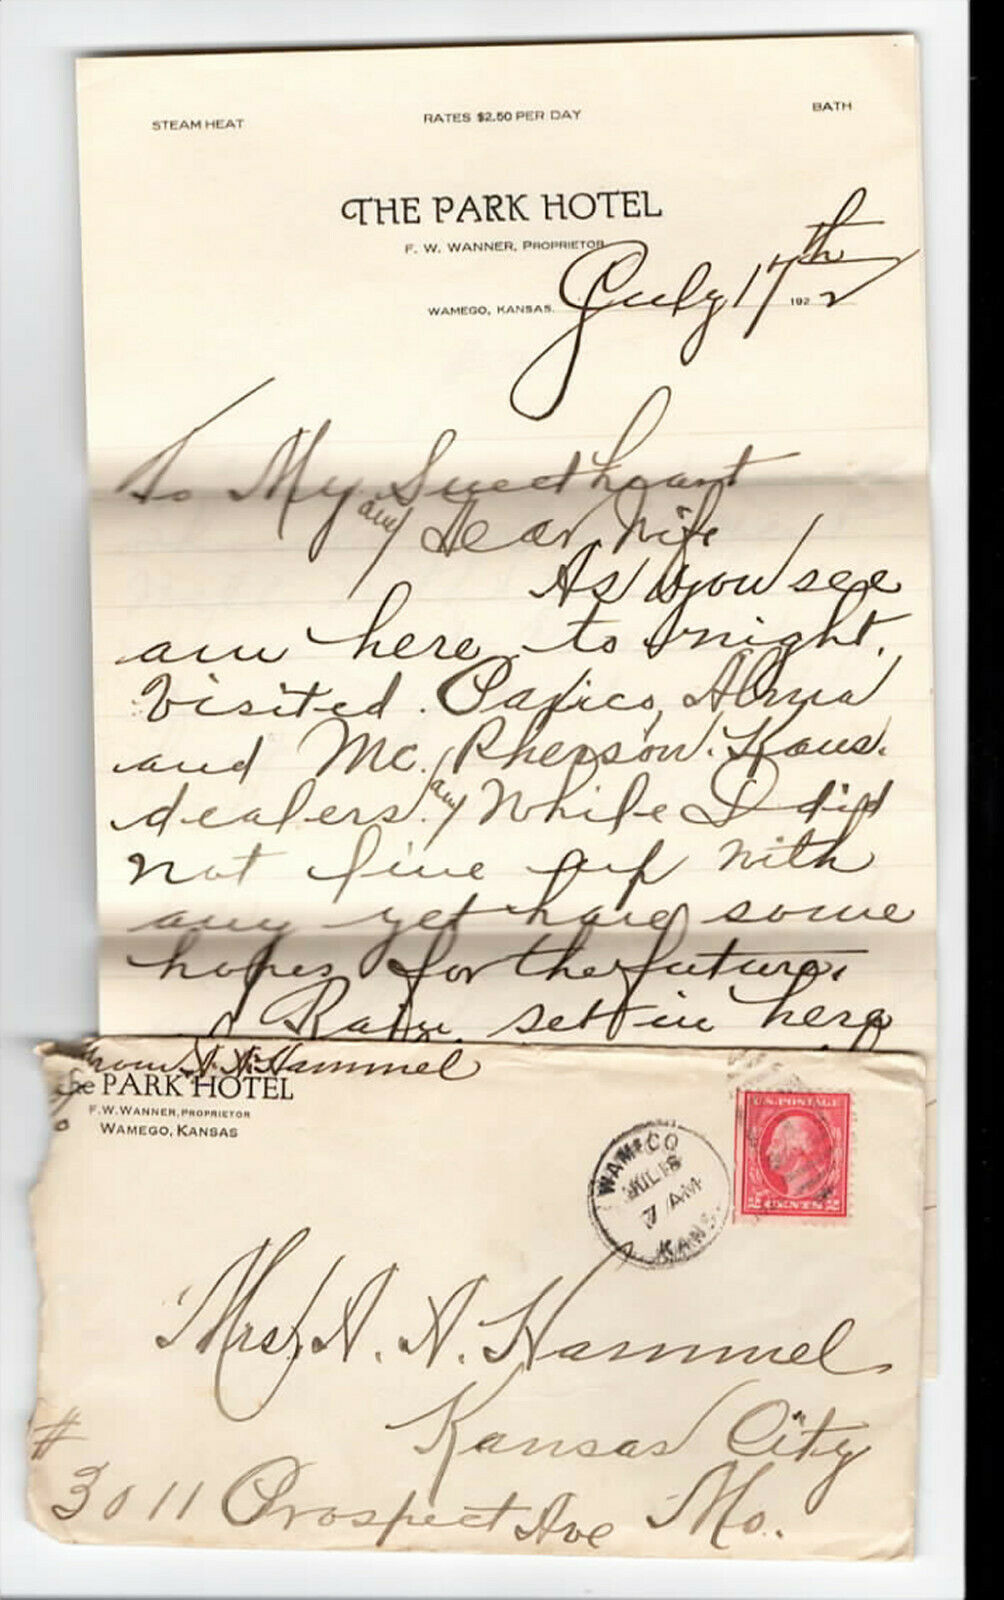 STEAM HEAT RATES $2.50 PER DAY BATH
THE PARK HOTEL
F. W. WANNER, PROPRIETOR
WAMEGO, KANSAS. July 17th 1922
To My Sweetheart
and Dear Wife
As you see
am here to night.
Visited. Paxico, Alma
and Mc. Pherson. Kans.
dealers. and While I did
not line up with
any yet have some
hopes for the future.
Rain set in here
From A. A. Hammel
The PARK HOTEL
F. W. WANNER, PROPRIETOR
WAMEGO, KANSAS
WAMEGO
JUL 18
7 AM
KANS.
U.S. POSTAGE
2 CENTS 2
Mrs. A. A. Hammel
Kansas City
# 3011 Prospect Ave Mo.